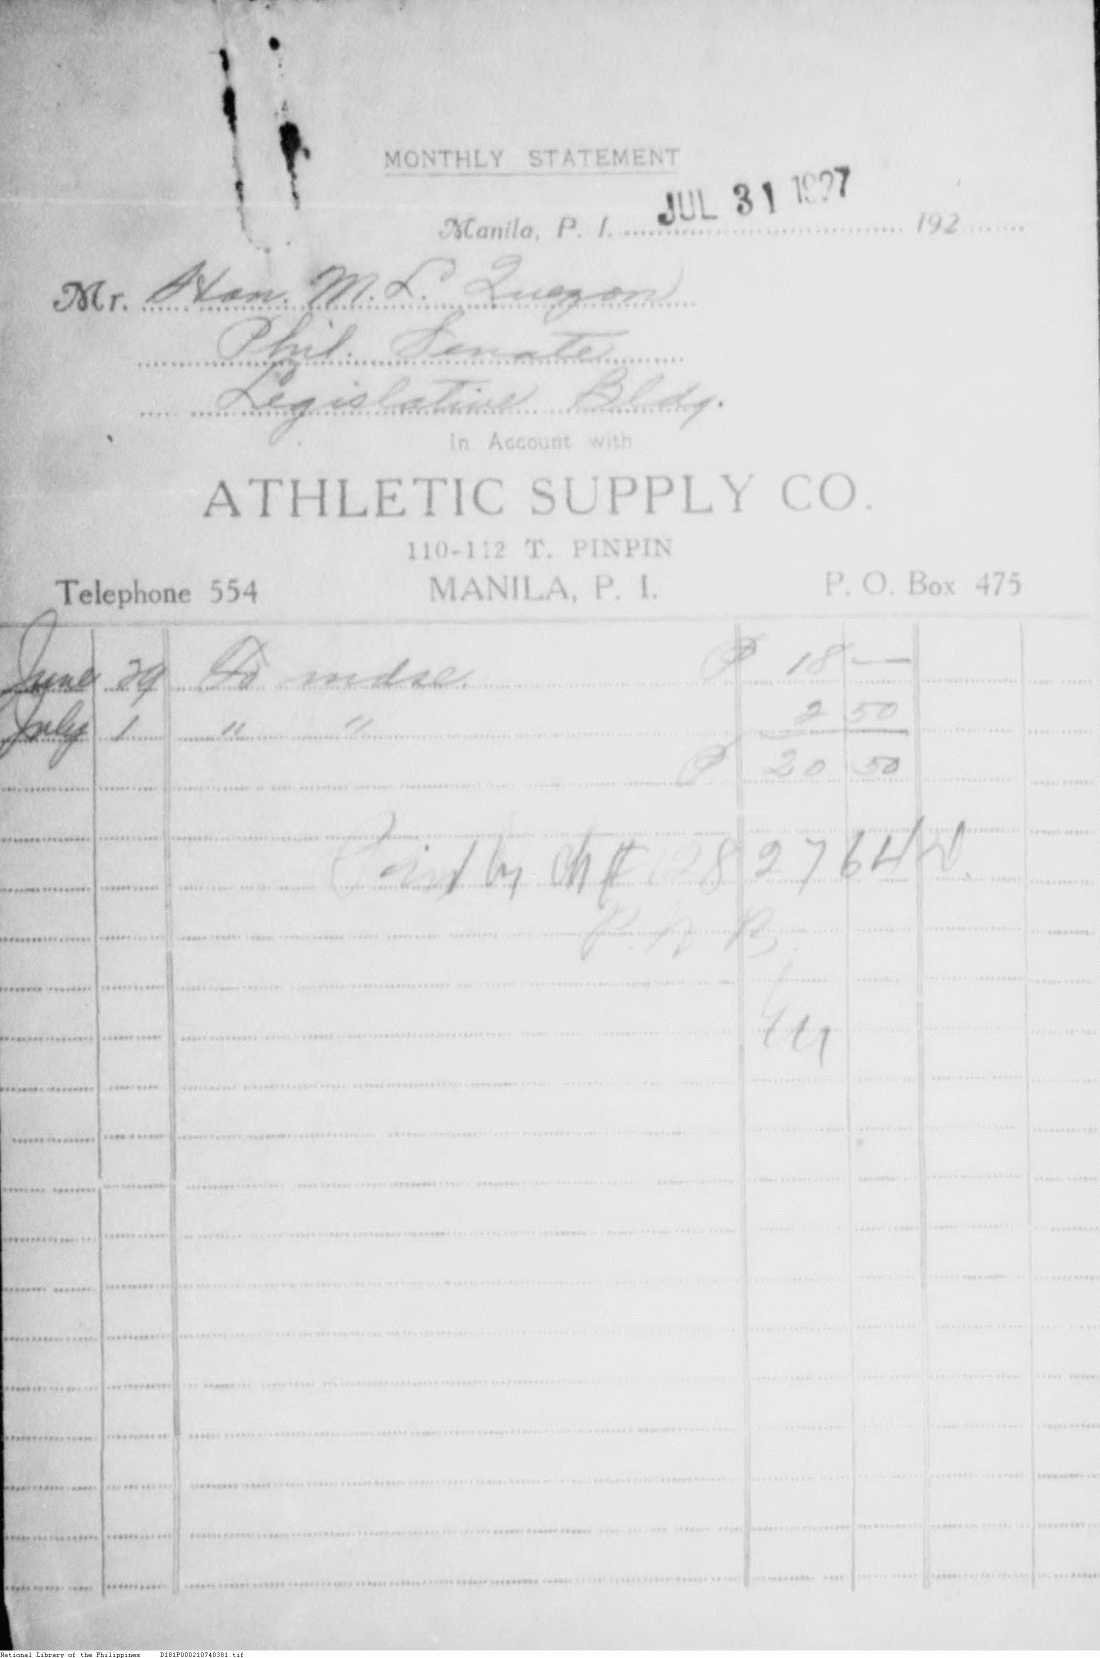 MONTHLY STATEMENT
Manila, P. I. JUL 31 1927 192
Mr. Hon. M. L. Quezon
Phil. Senate
Legislative Bldg.
In Account with
ATHLETIC SUPPLY CO.
110-112 T. PINPIN
Telephone 554 MANILA, P. I. P. O. Box 475
June 29 To mdse. ₱ 18 —
July 1 " " 2 50
₱ 20 50
Paid by ch # 282764
P. N. B.
National Library of the Philippines D181P000210740381.tif